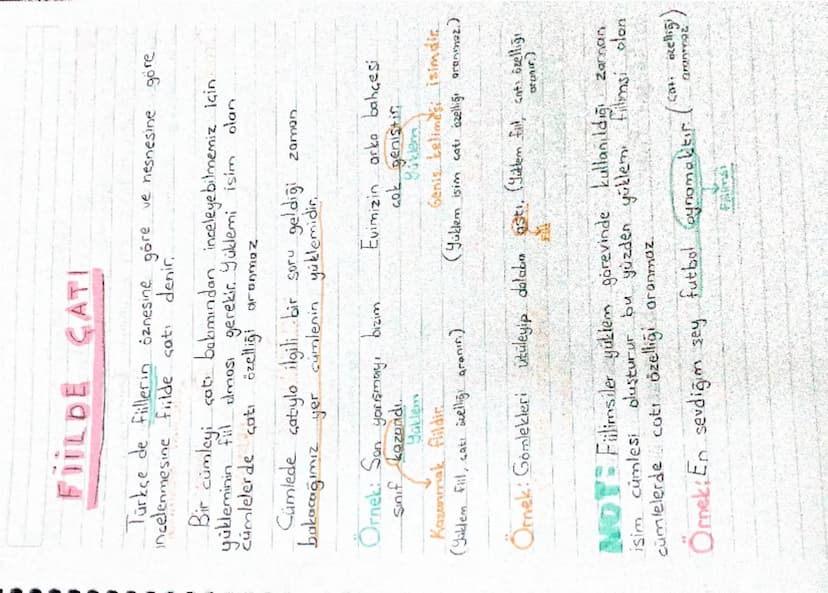 FİİLDE ÇATI
Türkçe de fiillerin öznesine göre ve nesnesine göre
incelenmesine fiilde çatı denir.
Bir cümleyi çatı bakımından inceleyebilmemiz için
yükleminin fiil olması gerekir. Yüklemi isim olan
cümlelerde çatı özelliği aranmaz
Cümlede çatıyla ilgili bir soru geldiği zaman
bakacağımız yer cümlenin yüklemidir.
Örnek: Son yarışmayı bizim
sınıf kazandı.
Yüklem
Kazanmak fiildir.
(Yüklem fiil, çatı özelliği aranır)
Evimizin arka bahçesi
çok geniştir.
Yüklem
Geniş kelimesi isimdir.
(Yüklem isim çatı özelliği aranmaz.)
Örnek: Gömlekleri ütüleyip dolaba astı. (Yüklem fiil, çatı özelliği
aranır.)
Fiil
NOT: Fiilimsiler yüklem görevinde kullanıldığı zaman
isim cümlesi oluşturur bu yüzden yüklemi fiilimsi olan
cümlelerde çatı özelliği aranmaz.
Örnek: En sevdiğim şey futbol oynamaktır (çatı özelliği
aranmaz)
Fiilimsi